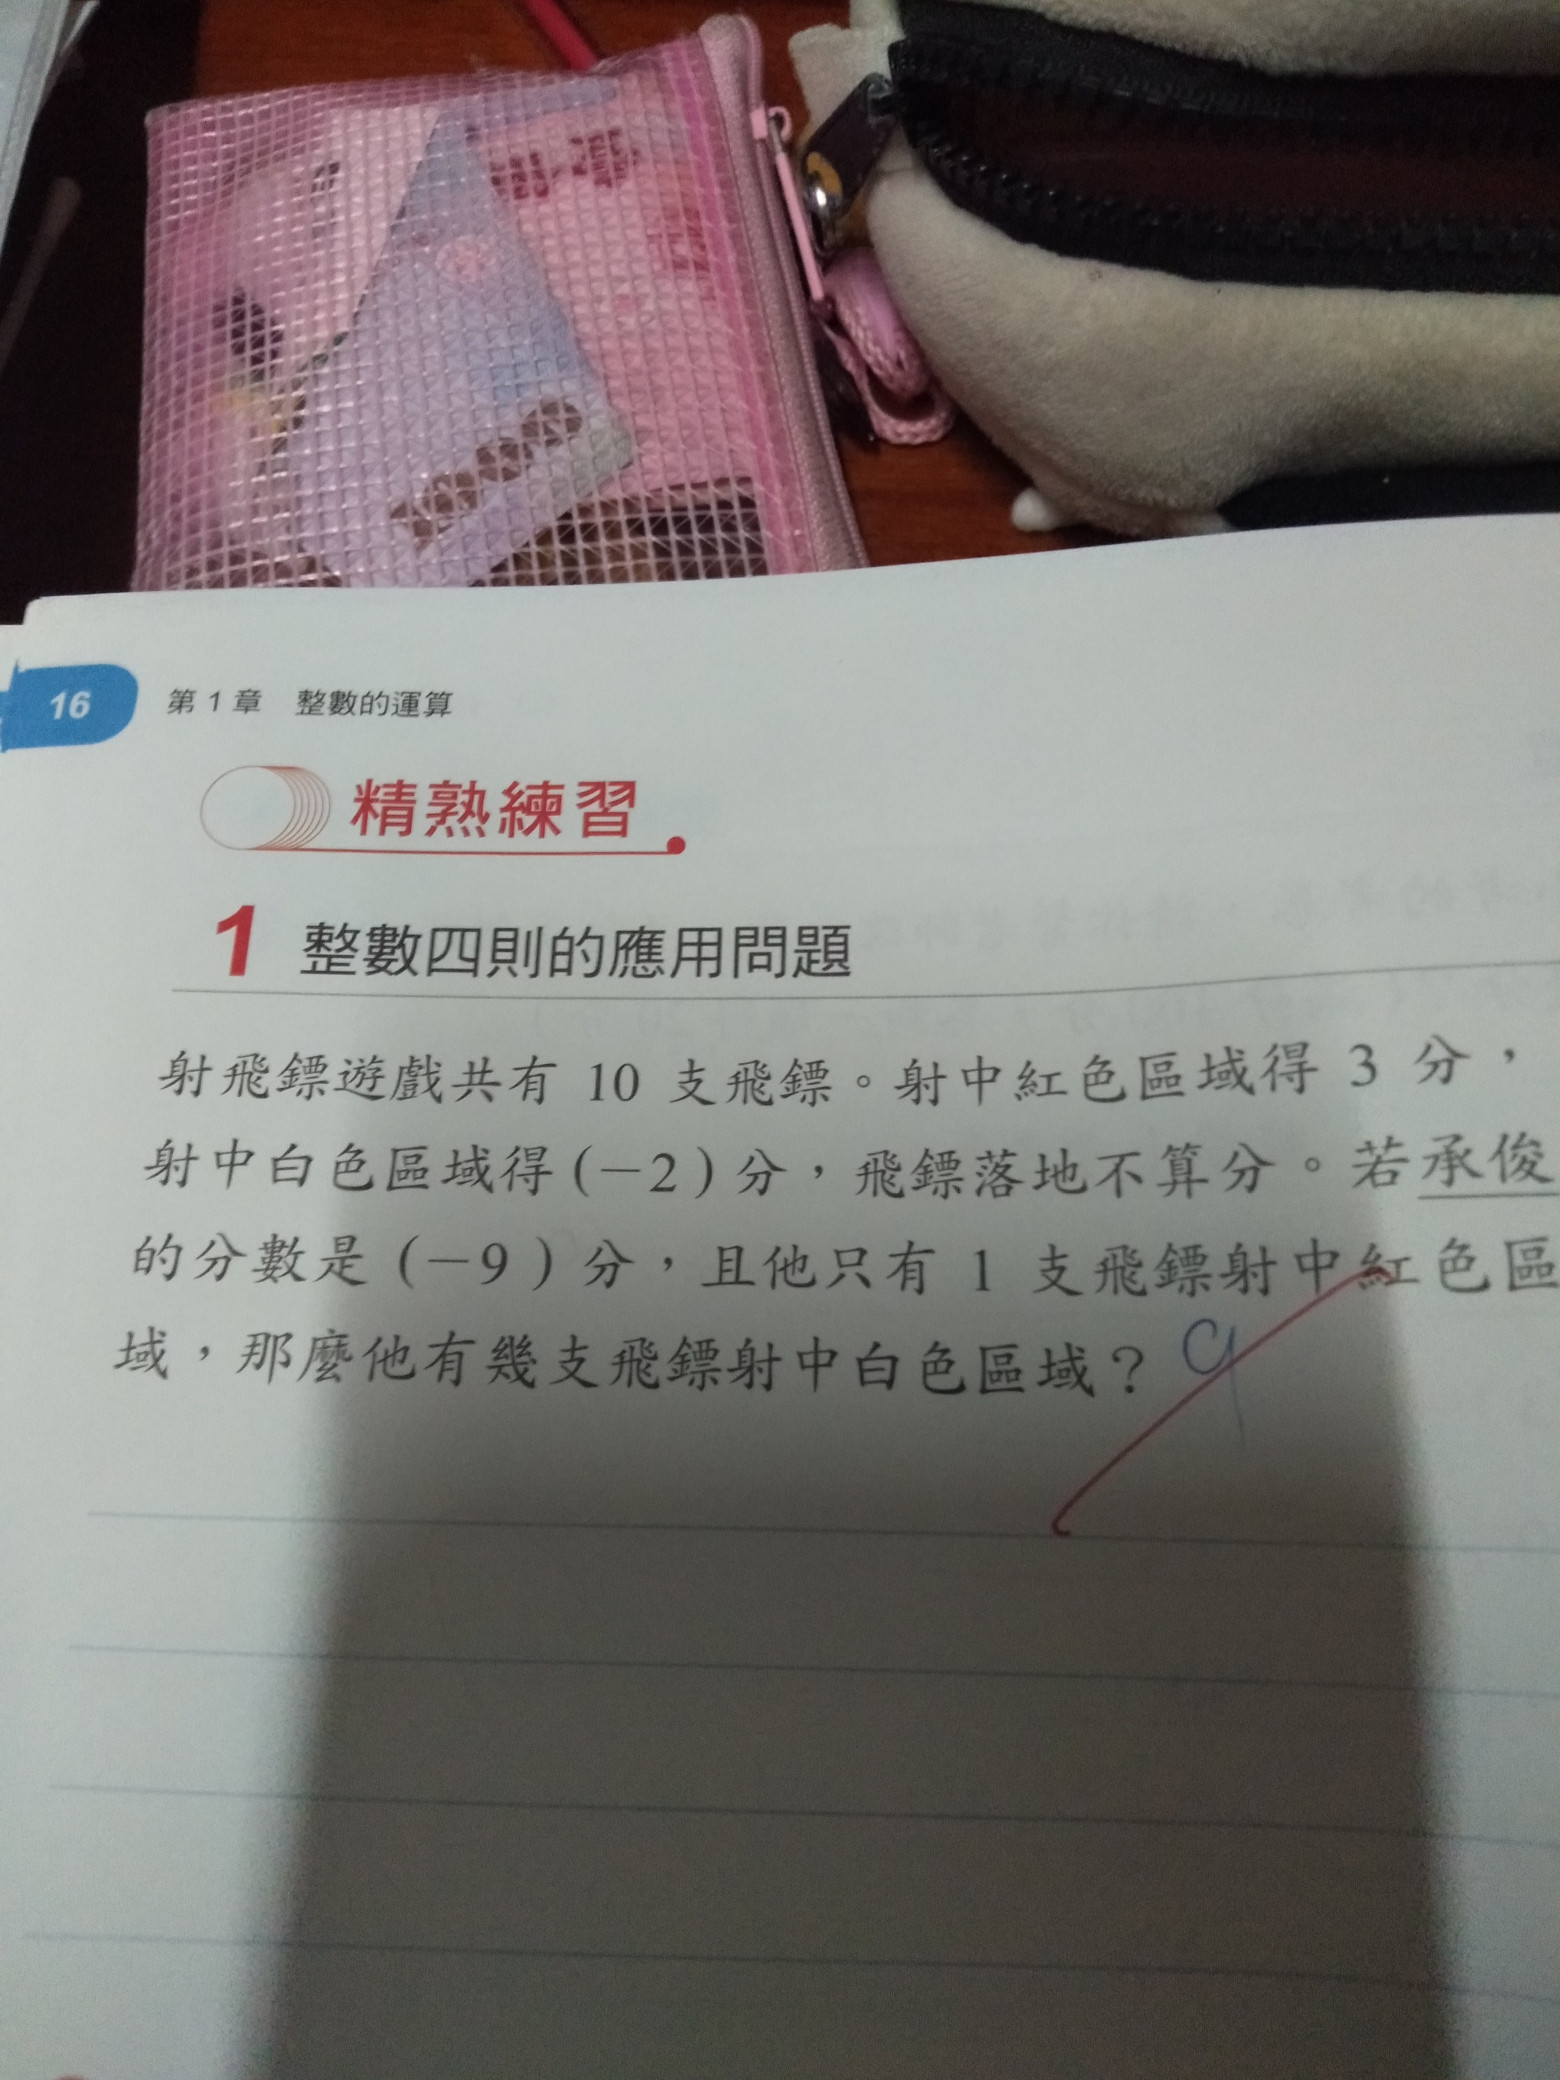 16
第 1 章 整數的運算
精熟練習
1 整數四則的應用問題
射飛鏢遊戲共有 10 支飛鏢。射中紅色區域得 3 分,
射中白色區域得(-2)分,飛鏢落地不算分。若承俊
的分數是(-9)分,且他只有 1 支飛鏢射中紅色區
域,那麼他有幾支飛鏢射中白色區域? 9